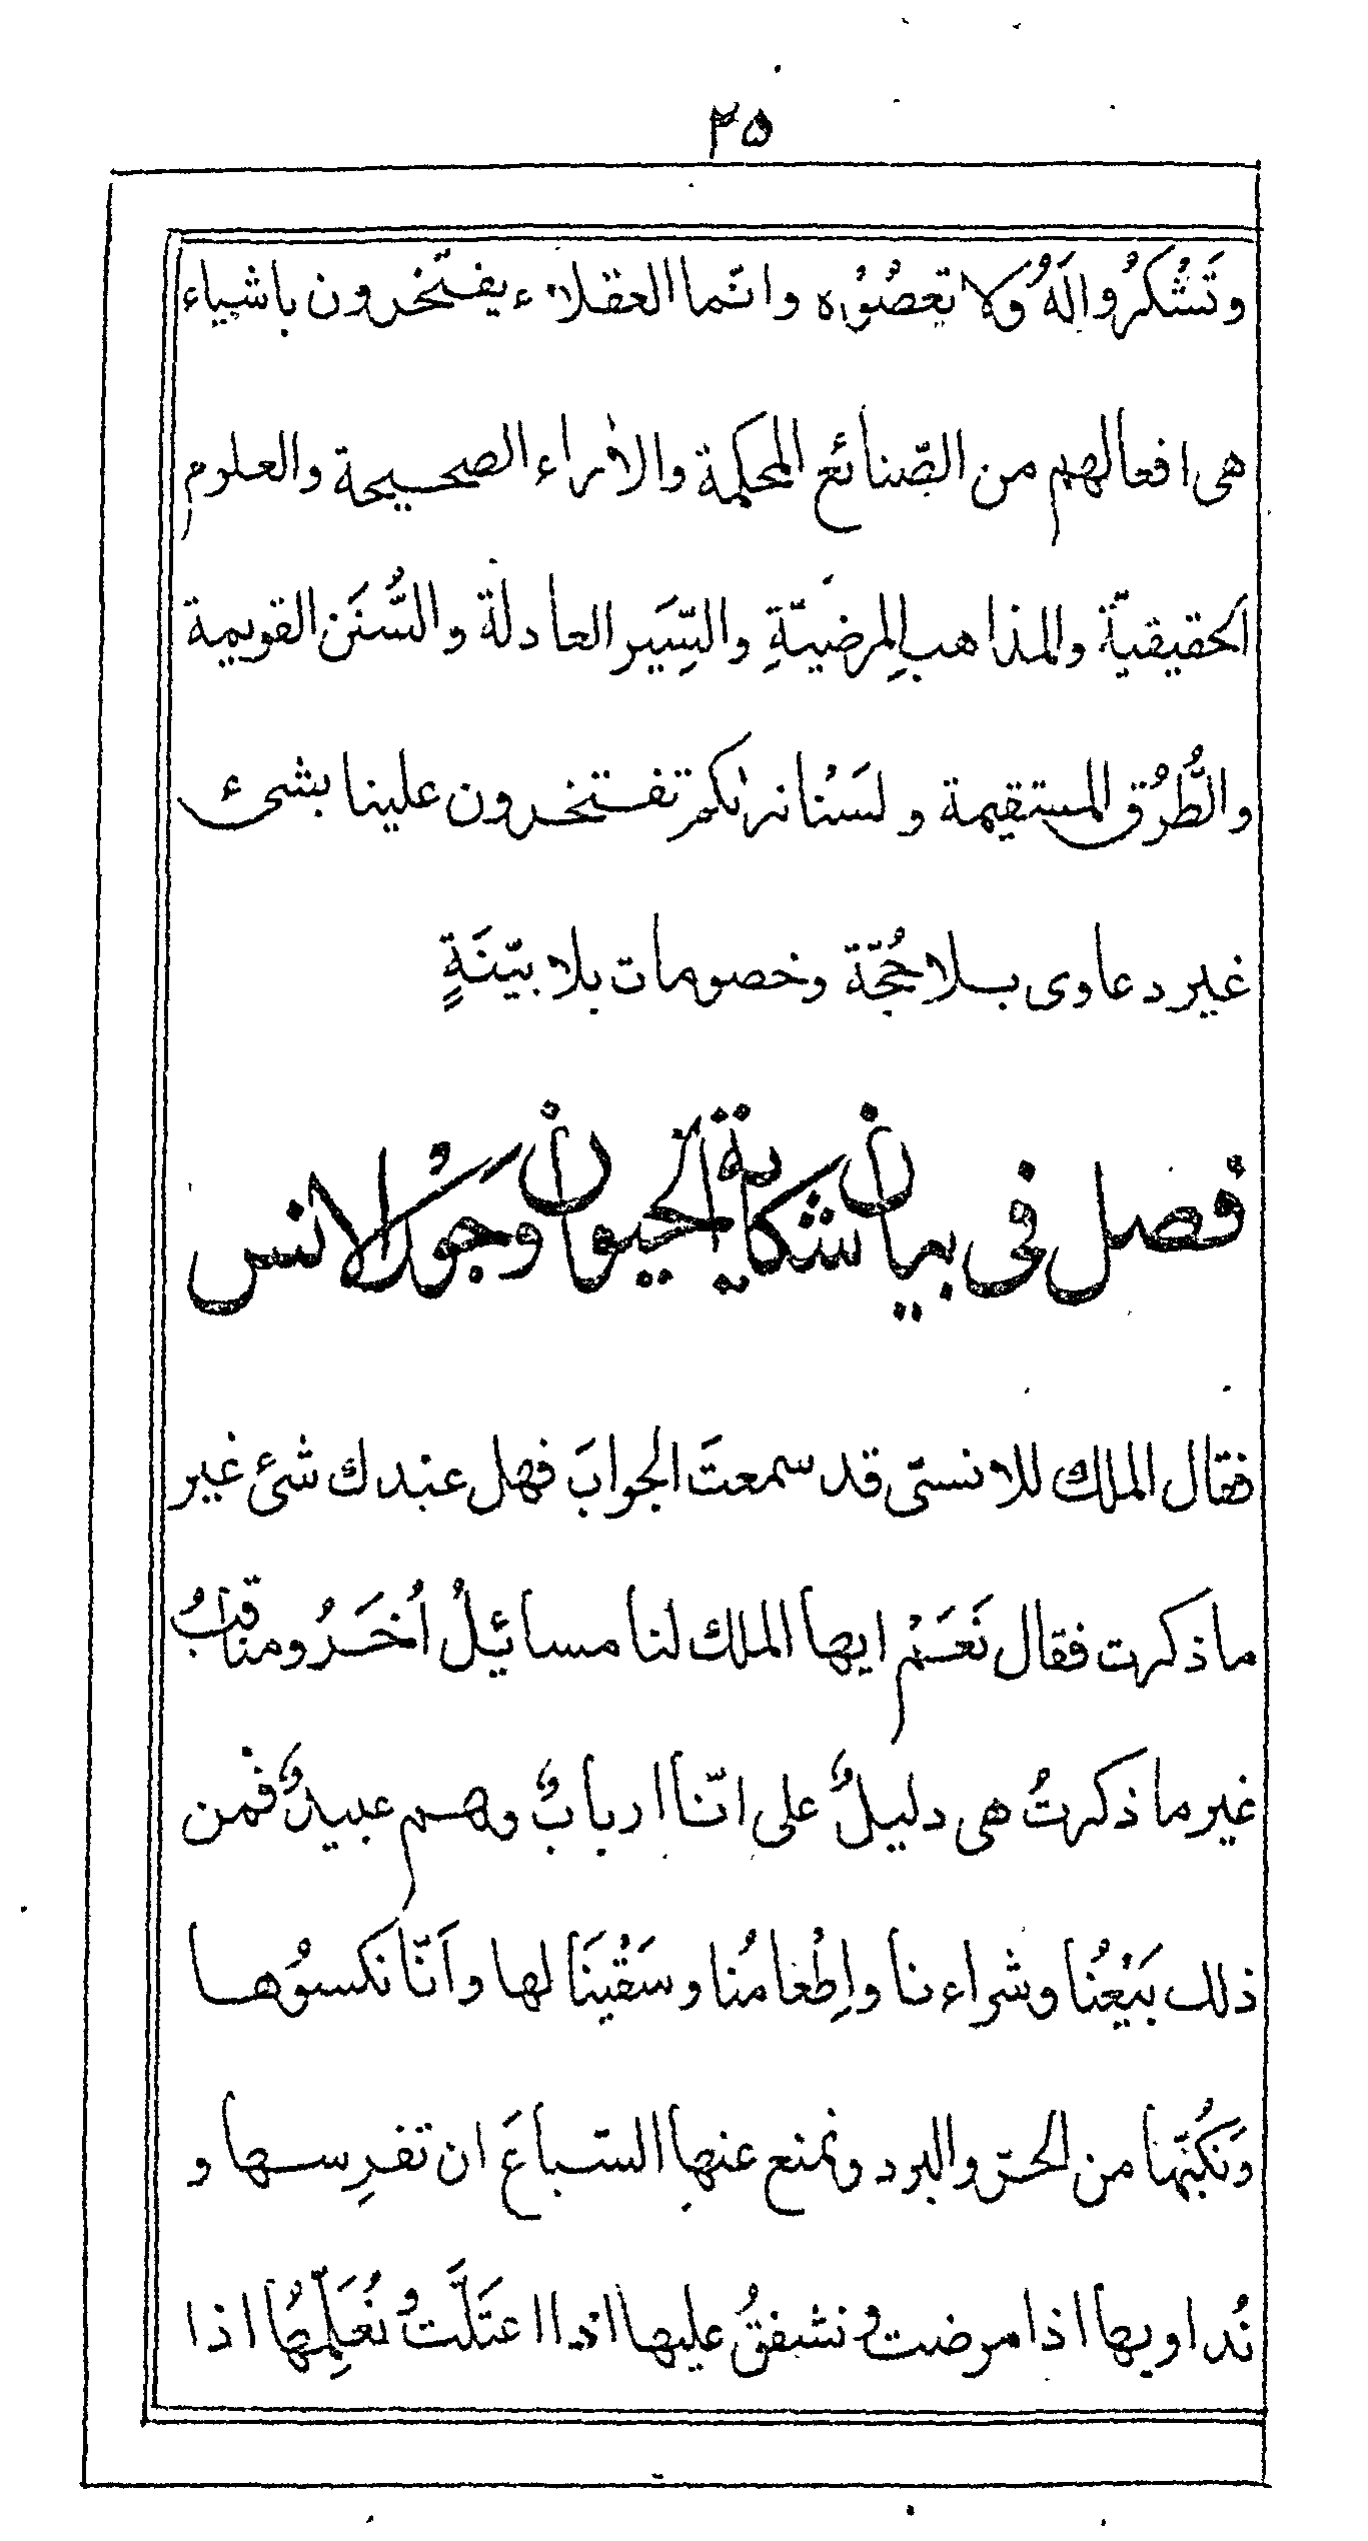 ٢٥
وتَشْكُرُوا لَهُ ولا تعصُوْه وانّما العقلاء يفتخرون باشياء
هى افعالهم من الصّنائع المحكمة والاراء الصحيحة والعلوم
الحقيقيّة والمذاهبِ المرضيّةِ والسِّيَر العادلة والسُّنَن القويمة
والطُّرُق المستقيمة ولسْنا نراكم تفتخرون علينا بشئ
غير دعاوى بلا حُجّة وخصومات بلا بيّنَةٍ
فصل فى بيان شكاية الحيوان وجور الانس
فقال الملك للانسىّ قد سمعتَ الجوابَ فهل عندك شئ غير
ما ذكرت فقال نَعَمْ ايها الملك لنا مسائيلُ اُخَرُ ومناقبُ
غير ما ذكرتُ هى دليلٌ على انّنا اربابٌ وهم عبيدٌ فمن
ذلك بَيْعُنا وشراءنا واِطْعامُنا وسَقْيَنا لها واَنّا نكسوُها
ونَكُنّها من الحرّ والبرد ونمنع عنها السّباعَ ان تفرِسها و
نُداويها اذا مرضت ونشفقُ عليها اذا اعتَلَّت ونُعَلِّمُها اذا